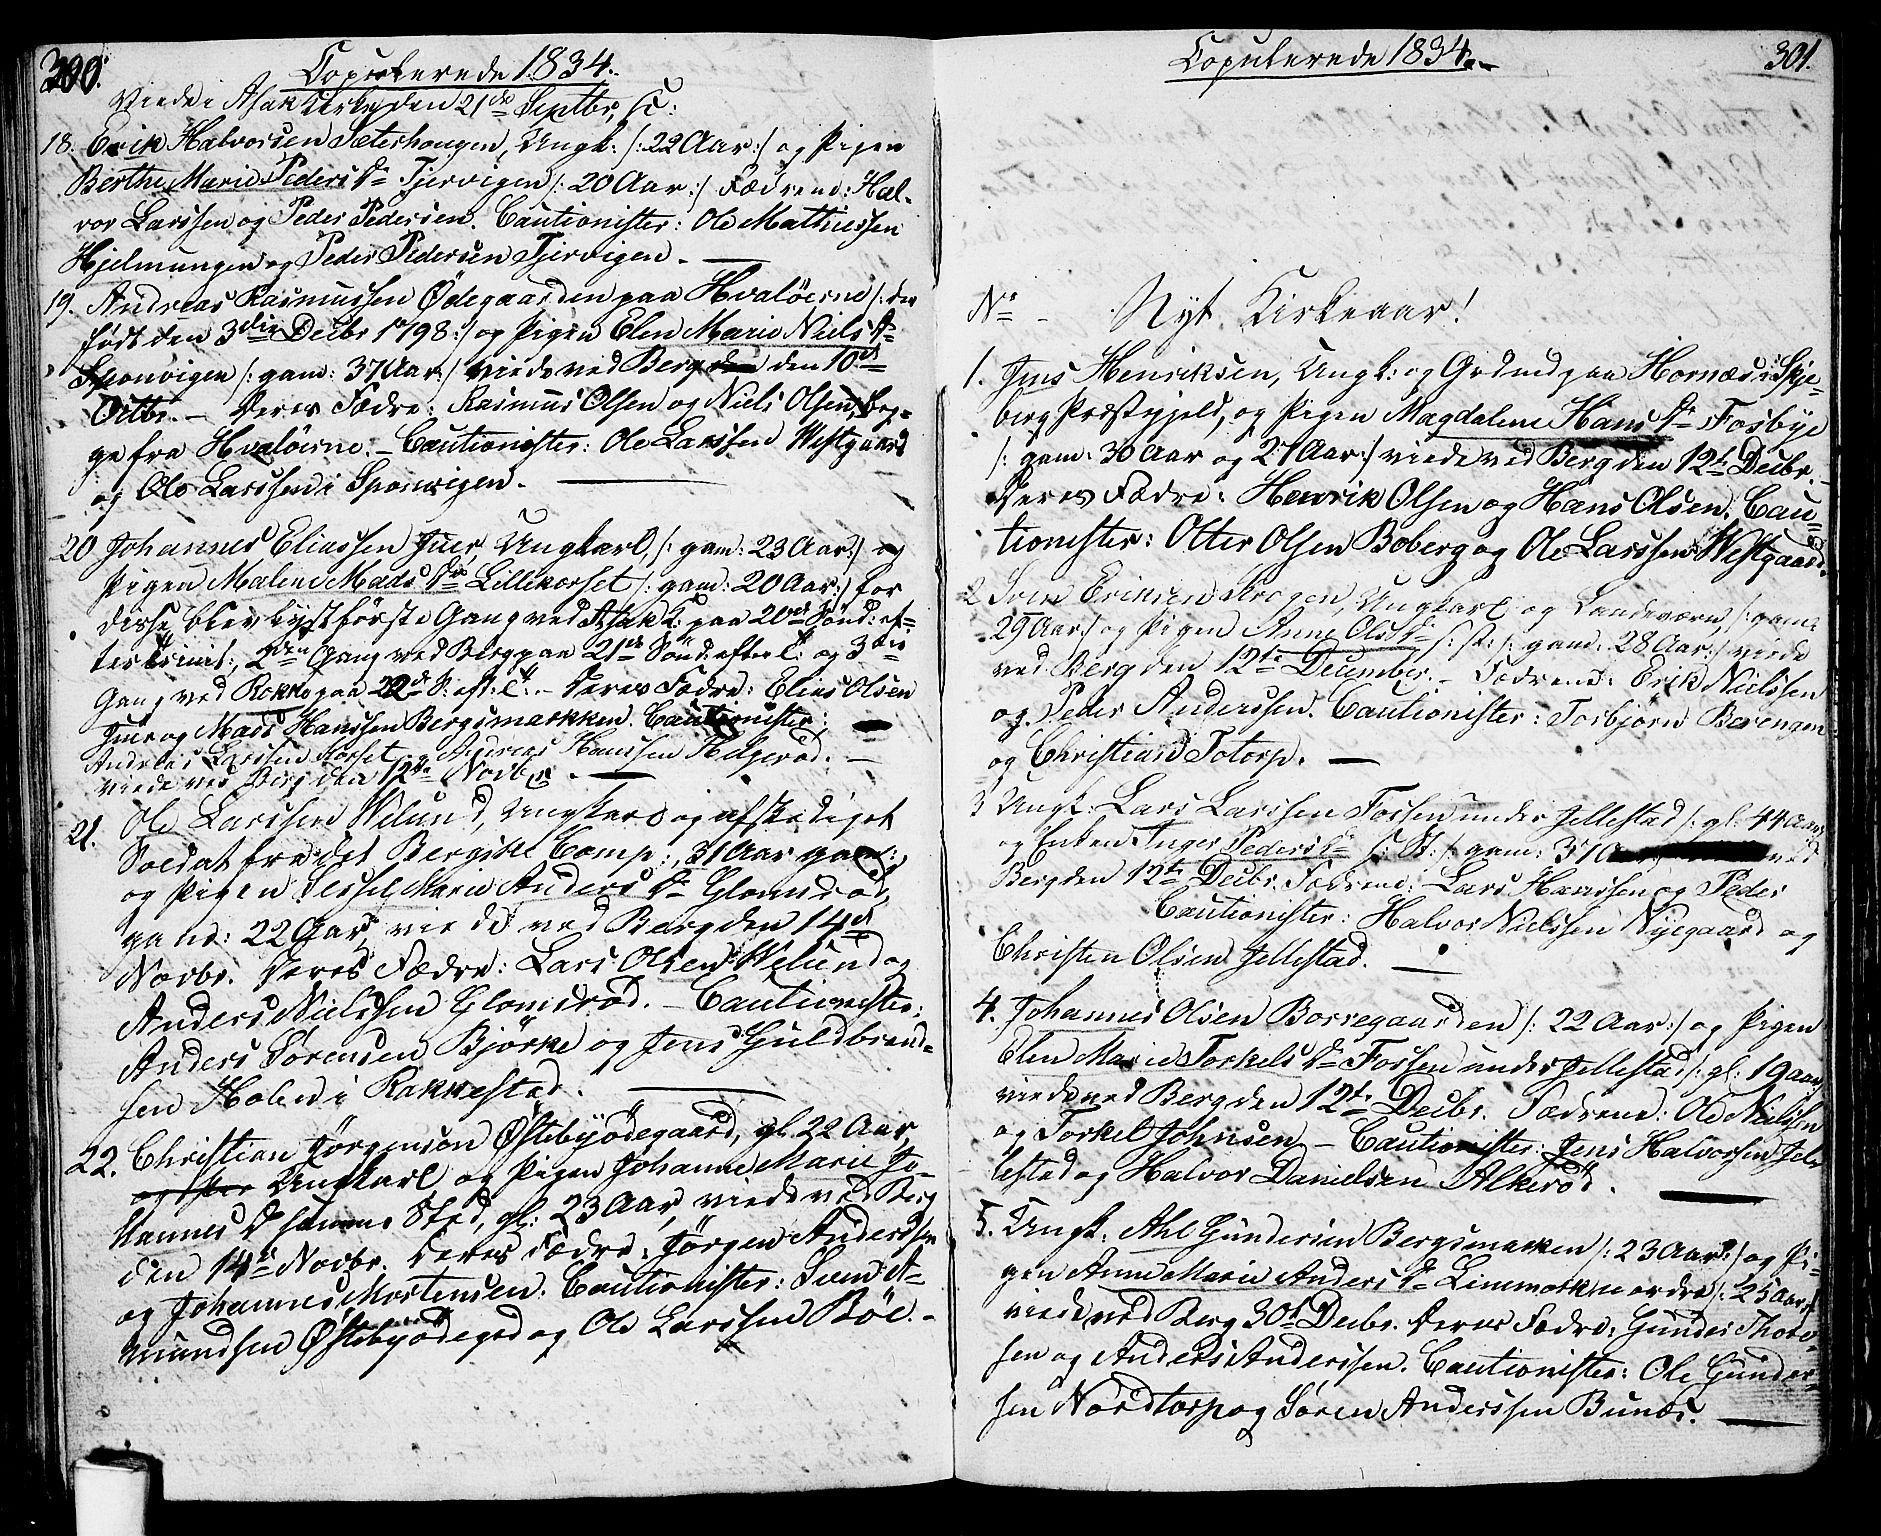 300.
Copulerede 1834.
Viede i Asak Kirke den 21de Septbr,
18. Erik Halvorsen Sæterhougen, Ungk: /: 22 Aar :/ og Pigen
Berthe Marie Peders Dr Tjervigen /: 20 Aar :/ Fædrene: Hal-
vor Larssen og Peder Pedersen. Cautionister: Ole Mathiessen
Hjelmungen og Peder Pedersen Tjervigen. —
19. Andreas Rasmussen Ødegaarden paa Hvaløerne /:
født den 3die Decbr 1798 :/ og Pigen Elen Marie Niels Dr
Sponvigen /: gam: 37 Aar :/ viede ved Berg den 10de
Octbr. — Deres Fædre: Rasmus Olsen og Niels Olsen, beg-
ge fra Hvaløerne. — Cautionister: Ole Larssen Westgaard
og Ole Larssen i Sponvigen. —
20 Johannes Eliassen Juer, Ungkarl, /: gam: 23 Aar :/ og
Pigen Malene Mads Dr Lillekorset /: gam: 20 Aar :/ for
disse blev lyst første Gang ved Asak K: paa 20de Sönd: ef-
ter Trinit:, 2den Gang ved Berg paa 21de Sönd: efter T: og 3die
Gang ved Rokke paa 22de S: eft: T: — Deres Fædre: Elias Olsen
Juer og Mads Hanssen Bergsmarkken. Cautionister:
Andreas Larssen Korset og Andreas Hanssen Helgerød. —
viede ved Berg den 12te Novbr. —
21. Ole Larssen Welund, Ungkarl og afskediget
Soldat fra det Bergske Comp:, 31 Aar gam:
og Pigen Sessel Marie Anders Dr Glomsrød,
gam: 22 Aar, viede ved Berg den 14de
Novbr. Deres Fædre: Lars Olsen Welund og
Anders Nielssen Glomsrød. — Cautionister:
Anders Sørensen Bjørke og Jens Guldbrand-
sen Holen i Rakkestad. —
22. Christian Jørgensen Østebyødegaard, gl. 22 Aar,
Ungkarl og Pigen Johanne Marie Jo-
hannes D samme Sted, gl: 23 Aar, viede ved Berg
den 14de Novbr. Deres Fædre: Jørgen Anderssen
og Johannes Mortensen. Cautionister: Svend A-
mundsen Østebyødegrd og Ole Larssen Böe. —
Copulerede 1834.
301.
No — Nyt Kirkeaar!
1. Jens Henriksen, Ungk: og Grdmd paa Hornæs i Skje-
berg Præstegjeld, og Pigen Magdalene Hans Dr Fosbye
/: gam: 30 Aar og 27 Aar :/ viede ved Berg den 12te Decbr. —
Deres Fædre: Henrik Olsen og Hans Olsen. Cau-
tionister: Otter Olsen Boberg og Ole Larssen Westgaard.
2 Sven Eriksen Krogen, Ungkarl og Landeværn, /: gam:
29 Aar :/ og Pigen Anne Ols Dr S: st: /: gam: 28 Aar :/ viede
ved Berg den 12te December. — Fædrene: Erik Nielssen
og Peder Anderssen. Cautionister: Torbjørn Berengen
og Christian Totorp. —
3 Ungk: Lars Larssen Fossen under Jellestad /: gl: 44 Aar
og Enken Inger Peders Dr S: St: /: gam: 37 ved
Berg den 12te Decbr. Fædrene: Lars Hanssen og Peder
Cautionister: Halvor Nielssen Nyegaard og
Christen Olsen Jellestad. —
4. Johannes Olsen Borregaarden /: 22 Aar :/ og Pigen
Elen Marie Torkels Dr Fossen under Jellestad /: gl: 19 Aar
viede ved Berg den 12te Decbr. Fædrene: Ole Nielssen
og Torkel Johnsen — Cautionister: Jens Halvorssen Jel-
lestad og Halvor Danielsen Alkerød. —
5. Ungk: Ahl Gundersen Bergsmarken /: 23 Aar :/ og Pi-
gen Anne Marie Anders Dr Limmosk nordre /: 25 Aar :/
viede ved Berg 30te Decbr. Deres Fædre: Gunder Thore-
sen og Anders Anderssen. Cautionister: Ole Gunder-
sen Nordtorp og Søren Anderssen Bunæs. —